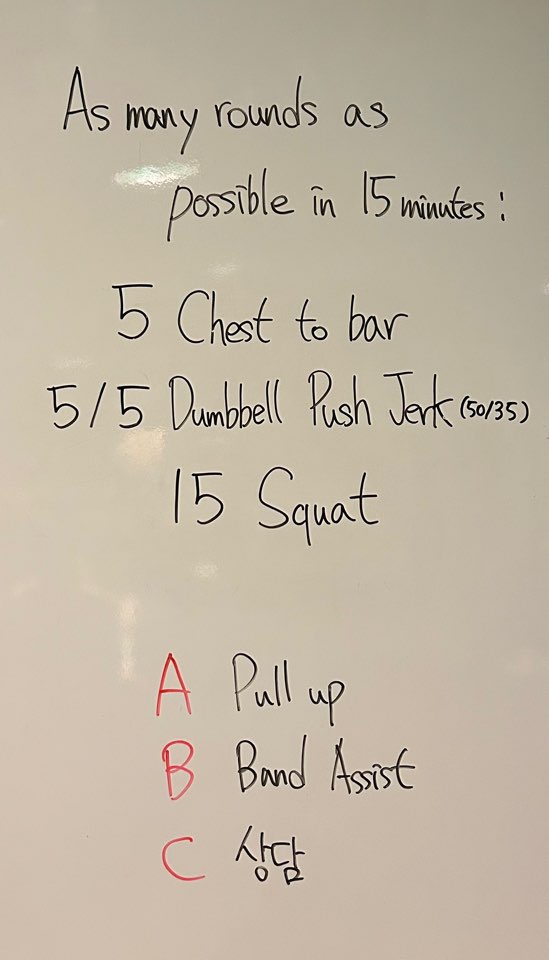 As many rounds as
possible in 15 minutes :
5 Chest to bar
5/5 Dumbbell Push Jerk (50/35)
15 Squat
A Pull up
B Band Assist
C 상담